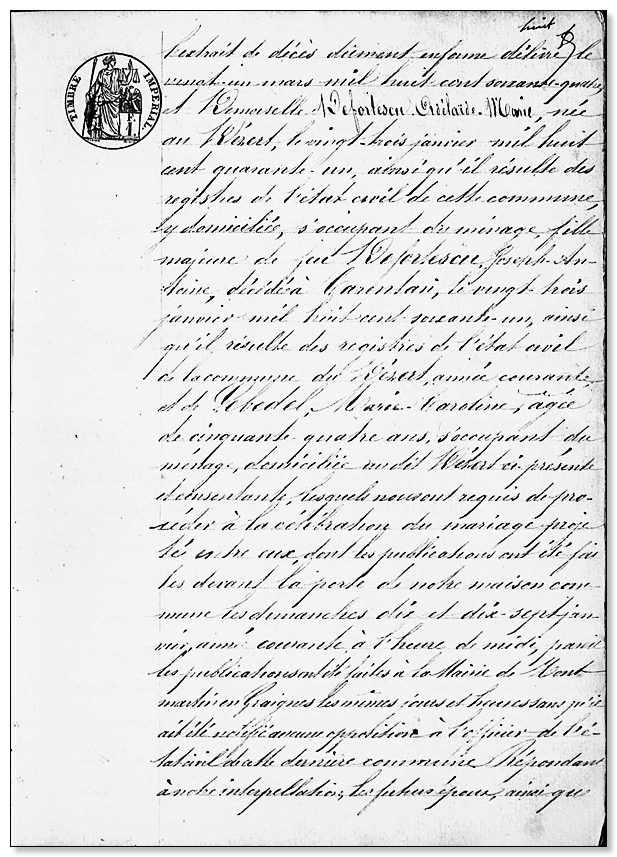 huit 8
TIMBRE IMPERIAL
l'extrait de décès dûment en forme délivré le
vingt-un mars mil huit cent soixante-quatre,
et Demoiselle Defortescu Adélaïde-Marie, née
au Dézert, le vingt-trois janvier mil huit
cent quarante-un, ainsi qu'il résulte des
registres de l'état civil de cette commune,
y domiciliée, s'occupant du ménage, fille
majeure de feu Defortescu, Joseph-An-
toine, décédé à Carentan, le vingt-trois
janvier mil huit cent soixante-un, ainsi
qu'il résulte des registres de l'état civil
de la commune du Dézert, année courante,
et de Lebedel, Marie-Caroline, âgée
de cinquante quatre ans, s'occupant du
ménage, domiciliée audit Dézert ci-présente
et consentante, lesquels nous ont requis de pro-
céder à la célébration du mariage proje
té entre eux, dont les publications ont été fai
tes devant la porte de notre maison com-
mune les dimanches dix et dix-sept jan-
vier, année courante à l'heure de midi, pareil
les publications ont été faites à la Mairie de Mont
martin en Graignes les mêmes jours et heures sans qu'il
ait été notifié aucune opposition à l'officier de l'é-
tat civil de cette dernière commune Répondant
à notre interpellation, les futurs époux, ainsi que